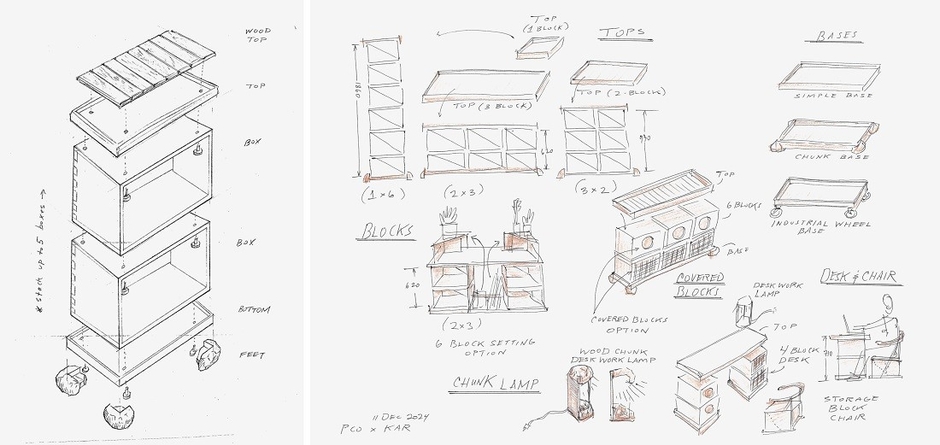 WOOD
TOP
TOP
BOX
* Stack up to 5 boxes →
BOX
BOTTOM
FEET
TOP
(1 BLOCK)
TOPS
BASES
1860
TOP (3 BLOCK)
TOP (2-BLOCK)
SIMPLE BASE
630
930
CHUNK BASE
(1x6)
(2x3)
(3x2)
TOP
6 BLOCKS
INDUSTRIAL WHEEL
BASE
BLOCKS
BASE
620
COVERED
BLOCKS
DESK & CHAIR
(2x3)
6 BLOCK SETTING
OPTION
COVERED BLOCKS
OPTION
DESK WORK
LAMP
TOP
4 BLOCK
DESK
WOOD CHUNK
DESK WORK LAMP
CHUNK LAMP
STORAGE
BLOCK
CHAIR
11 DEC 2024
PCO x KAR